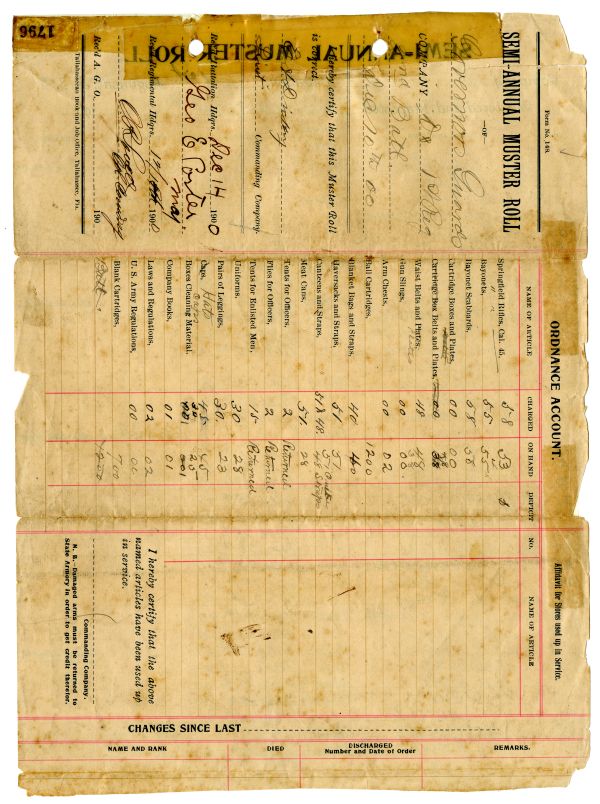 1796
Form No. 148.
SEMI-ANNUAL MUSTER ROLL
—OF—
Governors Guards
COMPANY D. 1st Reg
Dec 10th 00
I hereby certify that this Muster Roll
is correct.
Commanding Company.
Rec'd Battalion Hdqrs. Dec 14 1900
Geo E Porter
Maj
Rec'd Regimental Hdqrs. 1900
Rec'd A. G. O. 190
Tallahasseean Book and Job Office, Tallahassee, Fla.
SEMI-ANNUAL MUSTER ROLL
ORDNANCE ACCOUNT.
NAME OF ARTICLE CHARGED ON HAND DEFICIT
Springfield Rifles, Cal. 45, 58 53 5
Bayonets, 55 55
Bayonet Scabbards, 58 58
Cartridge Boxes and Plates, 00 00
Cartridge Box Belts and Plates, 00 38
Waist Belts and Plates, 48 48
Gun Slings, 00 00
Arm Chests, 02 02
Ball Cartridges, 1200
Blanket Bags and Straps, 40 40
Haversacks and Straps, 51 51
Canteens and Straps, 51 & 48 51 48 Straps
Meat Cans, 51 28
Tents for Officers, 2 Returned
Flies for Officers, 2 Returned
Tents for Enlisted Men, 15 Returned
Uniforms, 30 28
Pairs of Leggings, 30 23
Caps, Hats 45 45
Boxes Cleaning Material, 001 001
Company Books, 01 01
Laws and Regulations, 02 02
U. S. Army Regulations, 00 00
Blank Cartridges, 700
Ball 1200
Affidavit for Stores used up in Service.
No. NAME OF ARTICLE
I hereby certify that the above
named articles have been used up
in service.
Commanding Company.
N. B.—Damaged arms must be returned to
State Armory in order to get credit therefor.
CHANGES SINCE LAST
NAME AND RANK DIED DISCHARGED
Number and Date of Order REMARKS.